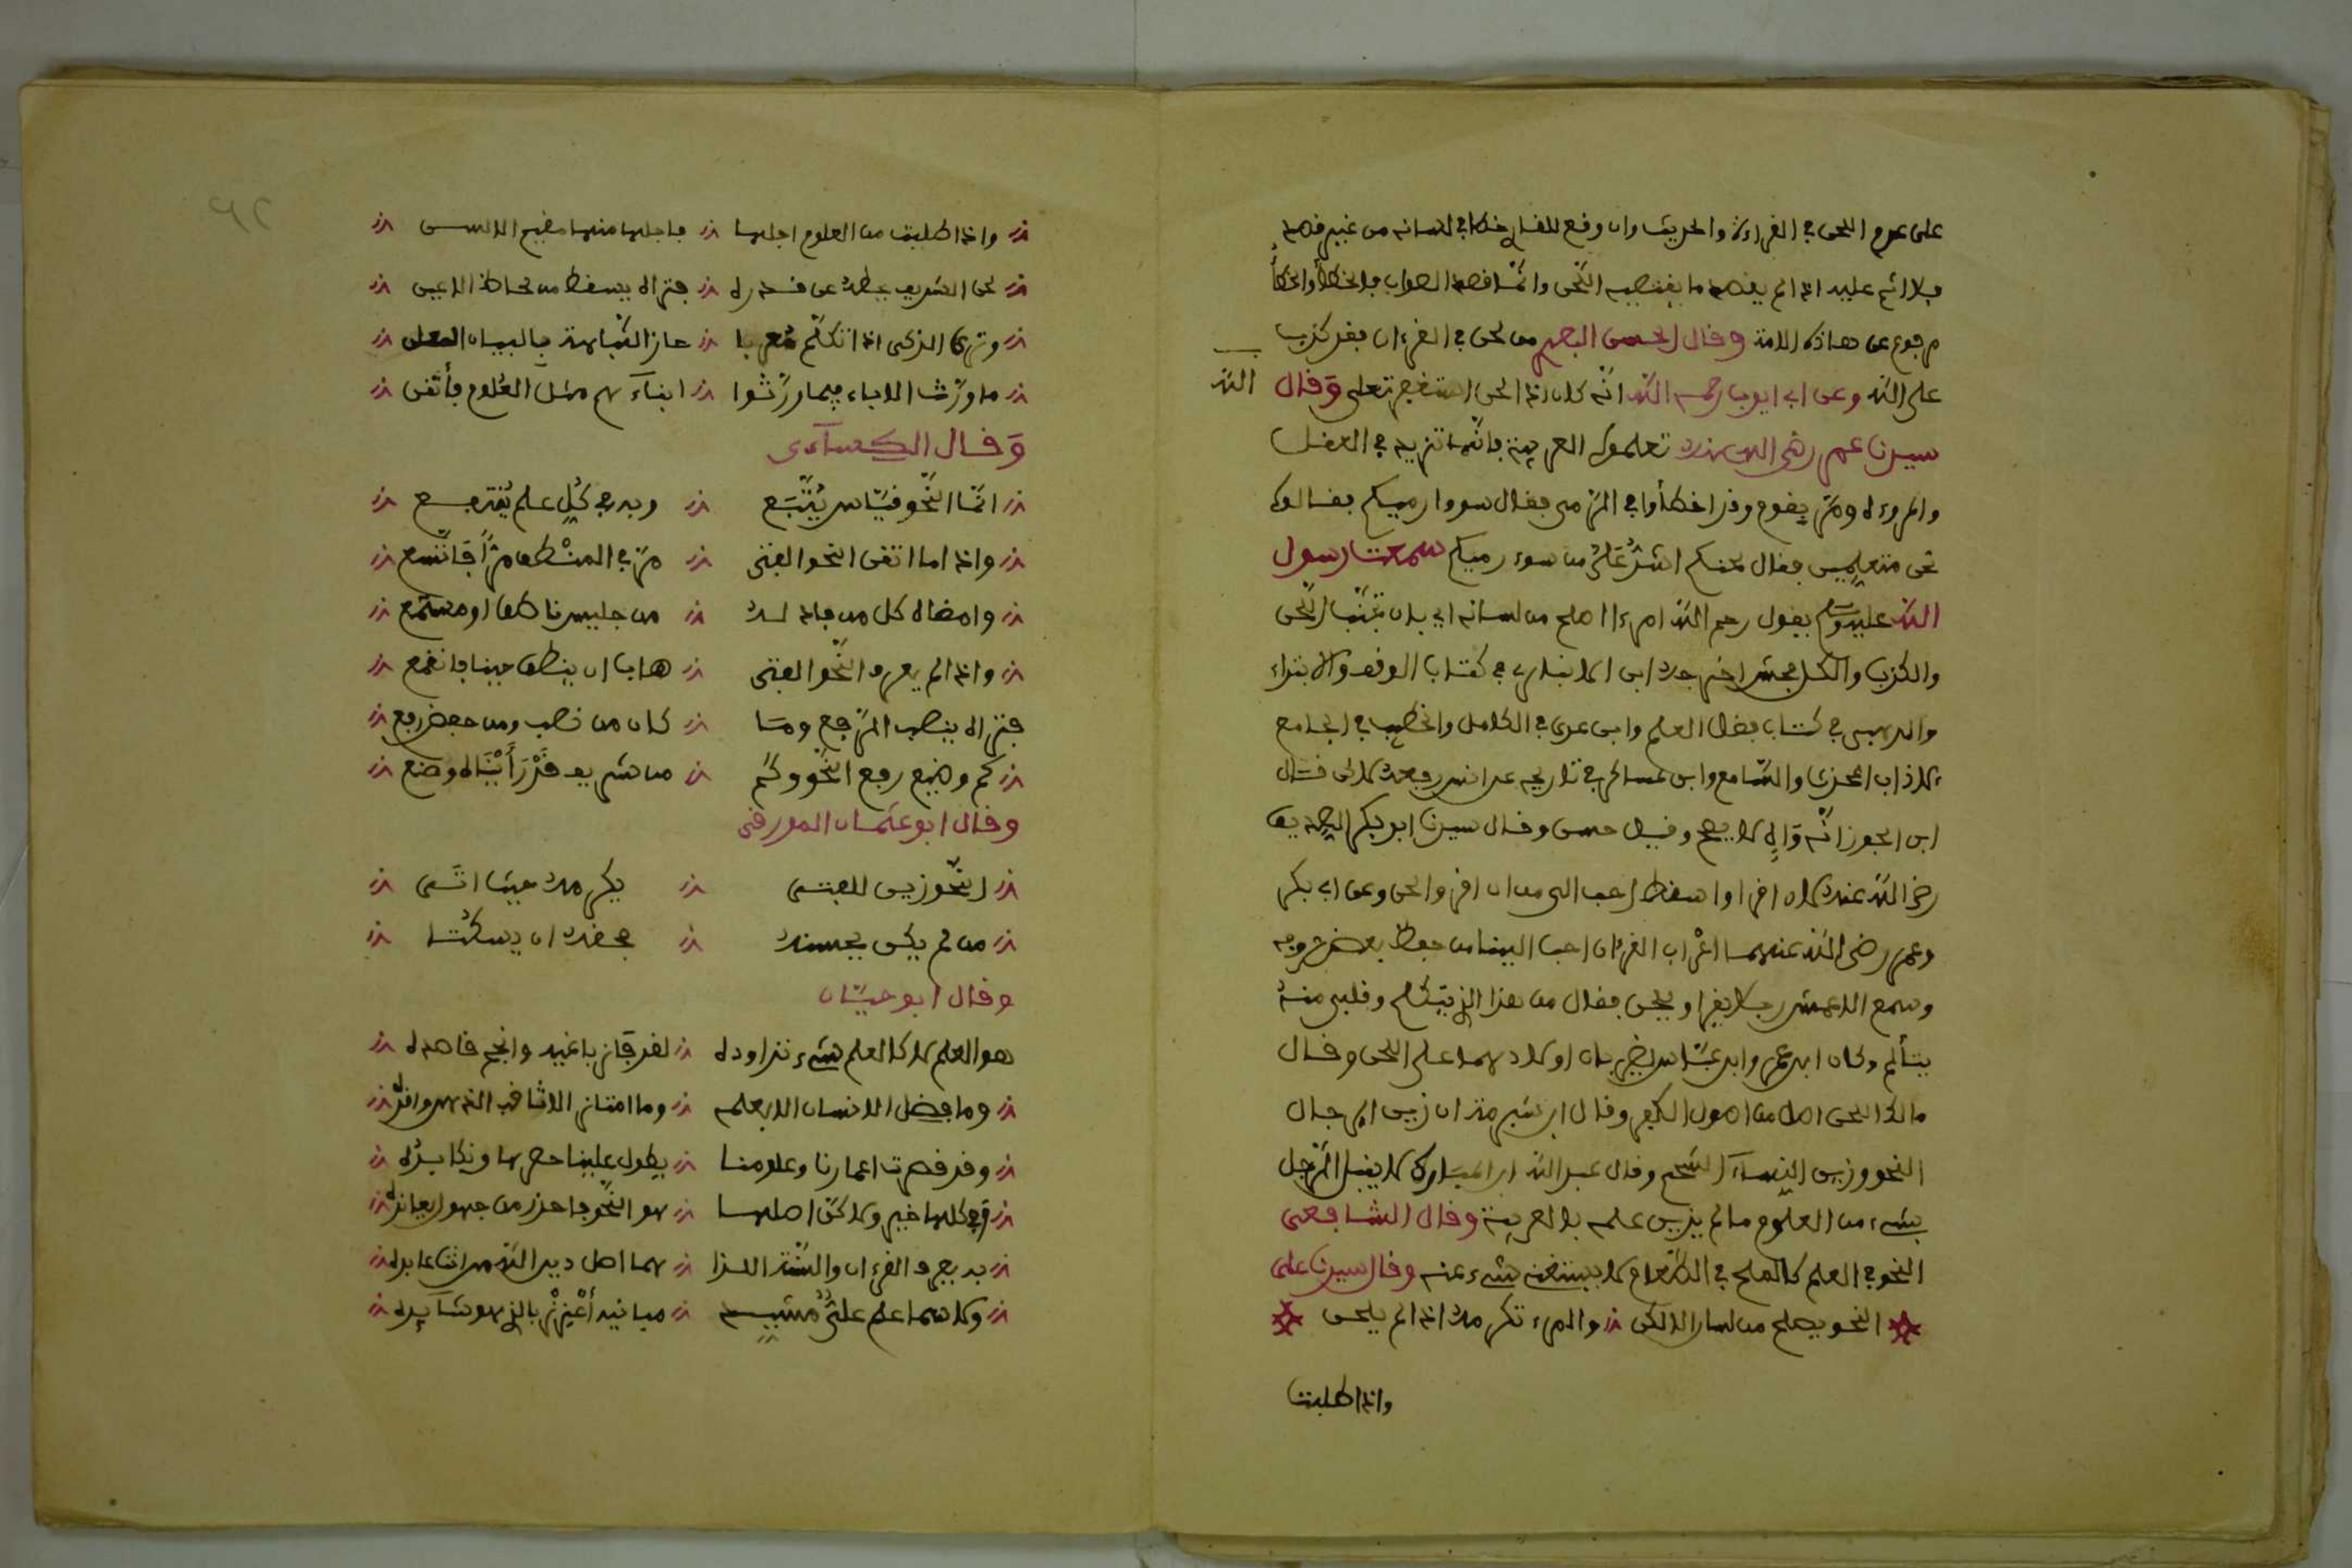 على عدم اللحن في القراءة والحديث وان وقع للقارئ خطا في لسانه من غير قصد
فلا اثم عليه اذا لم يقصد ما يقتضيه اللحن وانما قصد الصواب فاخطأ والخطأ
مرفوع عن هاذه الامة وقال الحسن البصري من لحن في القرءان فقد كذب
على الله وعن ابي ايوب رحمه الله انه كان اذا لحن استغفر تعلى وقال
الله
سيدنا عمر رضي الله عنه تعلموا العربية فانها تزيد في العقل
والمروءة ومر بقوم وقد اخطأوا في الرمي فقال سووا رميكم فقالوا
نحن متعلمين فقال لحنكم اشد علي من سوء رميكم سمعت رسول
الله عليه وسلم يقول رحم الله امرءا اصلح من لسانه اي بان تجنب اللحن
والكذب والكل فحش اخرجه ابن الانباري في كتاب الوقف والابتداء
والمرهبي في كتاب فضل العلم وابن عدي في الكامل والخطيب في الجامع
لاداب المحدث والسامع وابن عساكر في تاريخه عن انس رفعه لاكن قال
ابن الجوزي انه واه لا يصح وقيل حسن وقال سيدنا ابو بكر الصديق
رضي الله عنه لان اقرا واسقط احب الي من ان اقرا والحن وعن ابي بكر
وعمر رضي الله عنهما اعراب القرءان احب الينا من حفظ بعض حروفه
وسمع الاعمش رجلا يقرا ويلحن فقال من هذا الذي يتكلم وقلبي منه
يتألم وكان ابن عمر وابن عباس يضربان اولادهما على اللحن وقال
مالك اللحن اصل من اصول الكفر وقال ابن شبرمة ان زين الرجال
النحو وزين النساء الشحم وقال عبد الله ابن المبارك لا يقبل الرجل
بشيء من العلوم ما لم يزين علمه بالعربية وقال الشافعي
النحو في العلم كالملح في الطعام لا يستغنى شيء عنه وقال سيدنا علي
النحو يصلح من لسان الالكن والمرء تكرمه اذا لم يلحن
واذا طلبت
واذا طلبت من العلوم اجلها فاجلها منها مقيم الالسن
لحن الشريف يحطه عن قدره فتراه يسقط من لحاظ الاعين
وترى الذكي اذا تكلم معربا حاز النباهة بالبيان المعلن
ما ورث الاباء فيما ورثوا ابناءهم مثل العلوم فأتقن
وقال الكساءي
انما النحو قياس يتبع وبه في كل علم ينتفع
واذا ما اتقن النحو الفتى مر في المنطق مرا فاتسع
واتقاه كل من جالسه من جليس ناطق او مستمع
واذا لم يعرف النحو الفتى هاب ان ينطق جبنا فانقمع
فتراه ينصب الرفع وما كان من نصب ومن خفض رفع
كم وضيع رفع النحو وكم من شريف قد رأيناه وضع
وقال ابو عثمان المورقي
النحو زين للفتى يكرمه حيث اتى
من لم يكن يحسنه فحقه ان يسكتا
وقال ابو حيان
هو العلم لا كالعلم شيء تراوده لقد فاز باغيه وانجح قاصده
وما فضل الانسان الا بعلمه وما امتاز الا ثاقب الذهن واقده
وقد قصرت اعمارنا وعلومنا يطول علينا حصرها ونكابده
وفي كلها خير ولاكن اصلها هو النحو فاحذر من جهول يعانده
به يعرف القرءان والسنة اللذا هما اصل دين الله من انت عابده
وكلاهما علم علي مشيد مبانيه أعزز بالذي هو شائده